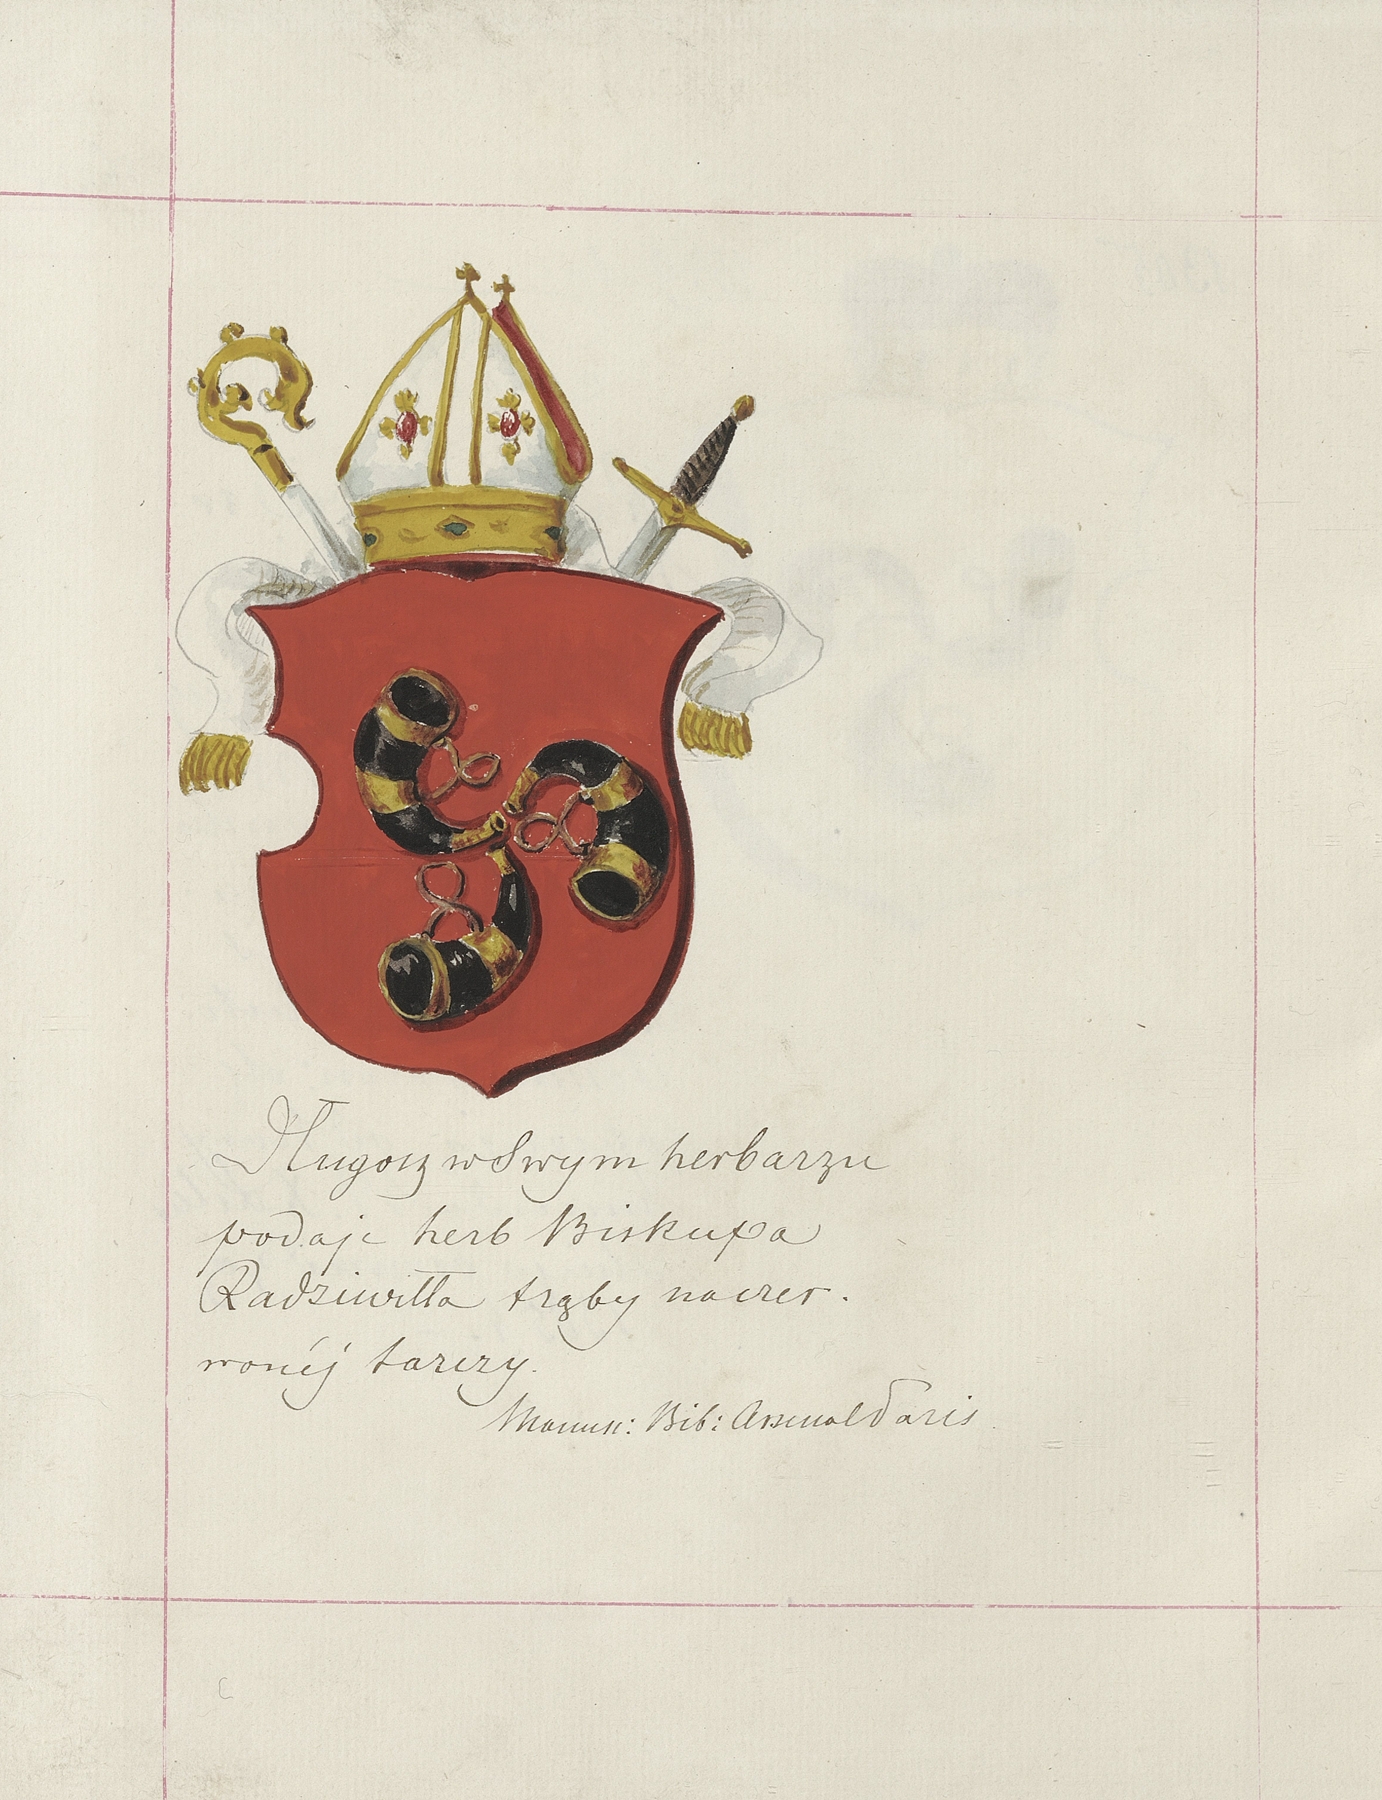 Długosz w Swym herbarzu
podaje herb Biskupa
Radziwiłła trąby na czer.
wonéj tarczy.
Manus: Bib: Arsenal Paris